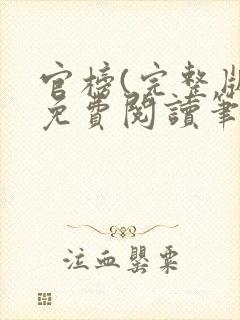 官榜(完整版
免費閱讀筆
泣血罌粟